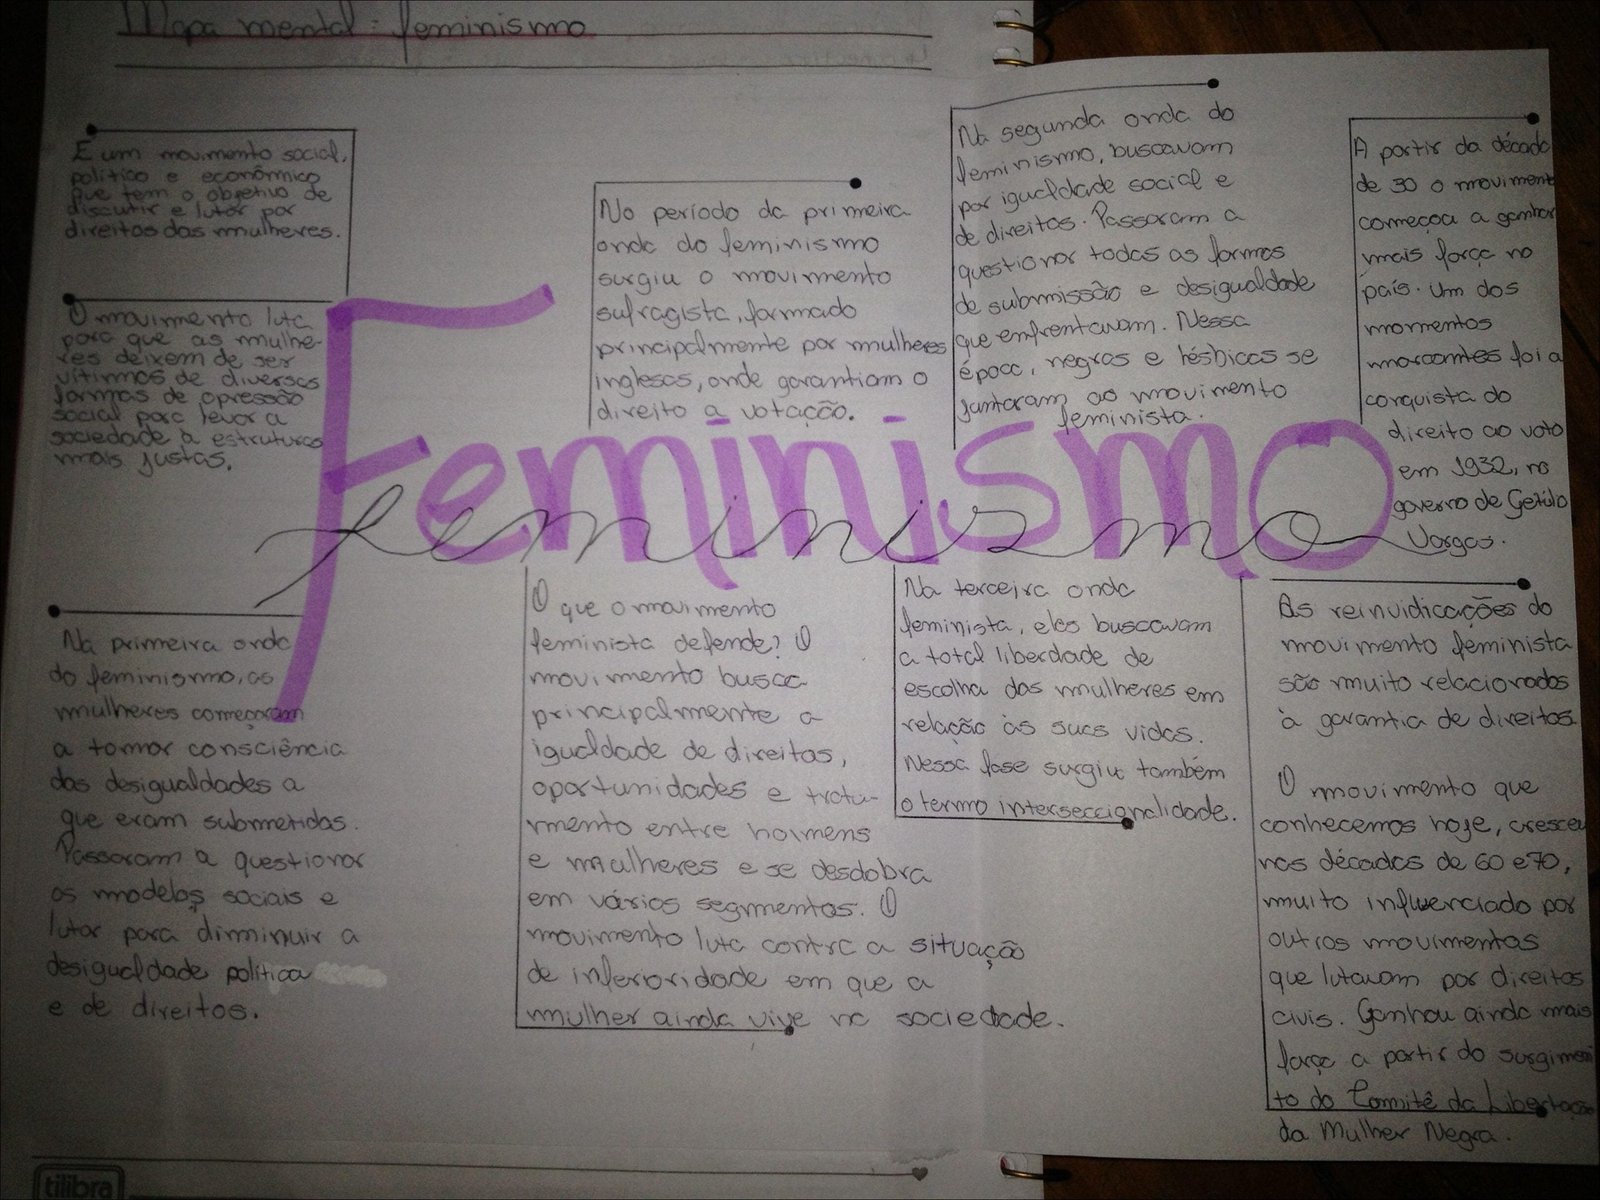 Mapa mental: feminismo
É um movimento social,
político e econômico
que tem o objetivo de
discutir e lutar por
direitos das mulheres.
O movimento luta
para que as mulhe-
res deixem de ser
vítimas de diversas
formas de opressão
social para levar a
sociedade a estruturas
mais justas.
Na primeira onda
do feminismo, as
mulheres começaram
a tomar consciência
das desigualdades a
que eram submetidas.
Passaram a questionar
os modelos sociais e
lutar para diminuir a
desigualdade política
e de direitos.
No período da primeira
onda do feminismo
surgiu o movimento
sufragista, formado
principalmente por mulheres
inglesas, onde garantiam o
direito a votação.
Na segunda onda do
feminismo, buscavam
por igualdade social e
de direitos. Passaram a
questionar todas as formas
de submissão e desigualdade
que enfrentavam. Nessa
época, negras e lésbicas se
juntaram ao movimento
feminista.
A partir da década
de 30 o movimento
começou a ganhar
mais força no
país. Um dos
momentos
marcantes foi a
conquista do
direito ao voto
em 1932, no
governo de Getúlo
Vargas.
Feminismo
feminismo
O que o movimento
feminista defende? O
movimento busca
principalmente a
igualdade de direitos,
oportunidades e trata-
mento entre homens
e mulheres e se desdobra
em vários segmentos. O
movimento luta contra a situação
de inferioridade em que a
mulher ainda vive na sociedade.
Na terceira onda
feminista, elas buscavam
a total liberdade de
escolha das mulheres em
relação às suas vidas.
Nessa fase surgiu também
o termo interseccionalidade.
As reinvidicações do
movimento feminista
são muito relacionados
à garantia de direitos
O movimento que
conhecemos hoje, cresceu
nas décadas de 60 e 70,
muito influenciado por
outros movimentos
que lutavam por direitos
civis. Ganhou ainda mais
força a partir do surgimen
to do Comitê da Libertação
da Mulher Negra.
tilibra